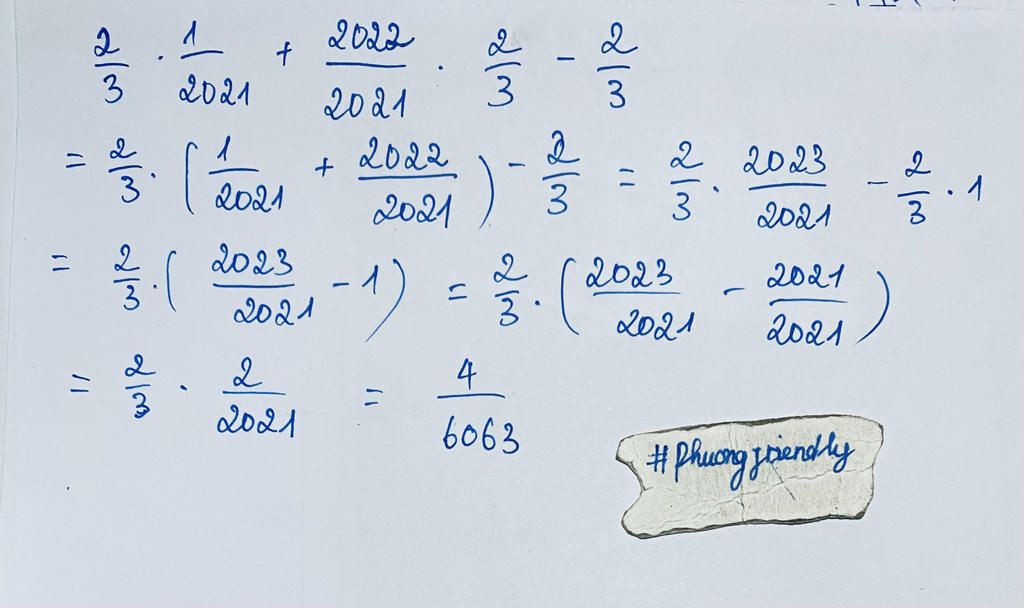 2/3 . 1/2021 + 2022/2021 . 2/3 - 2/3
= 2/3 . (1/2021 + 2022/2021) - 2/3 = 2/3 . 2023/2021 - 2/3 . 1
= 2/3 . (2023/2021 - 1) = 2/3 . (2023/2021 - 2021/2021)
= 2/3 . 2/2021 = 4/6063
#Phuongfriendly